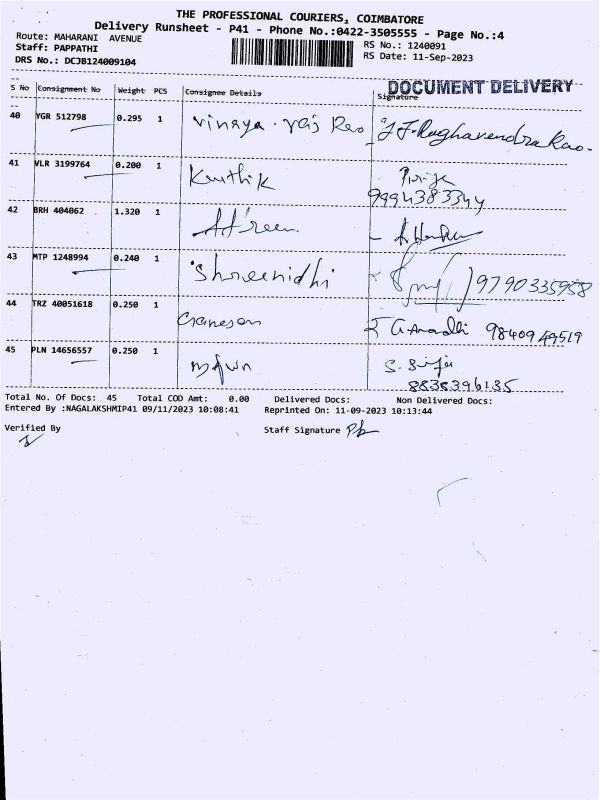 THE PROFESSIONAL COURIERS, COIMBATORE
Delivery Runsheet - P41 - Phone No.:0422-3505555 - Page No.:4
Route: MAHARANI AVENUE
RS No.: 1240091
Staff: PAPPATHI
RS Date: 11-Sep-2023
DRS No.: DCJB124009104
DOCUMENT DELIVERY
S No Consignment No Weight PCS Consignee Details Signature
40 YGR 512798 0.295 1 Vinaya. raj Rao J.J.Raghavendra Rao.
41 VLR 3199764 0.200 1 Karthik
9994383344
42 BRH 404062 1.320 1
43 MTP 1248994 0.240 1 Shreenidhi 9790335958
44 TRZ 40051618 0.250 1 Ganesan 9840949519
45 PLN 14656557 0.250 1
8838396135
Total No. Of Docs: 45 Total COD Amt: 0.00 Delivered Docs: Non Delivered Docs:
Entered By :NAGALAKSHMIP41 09/11/2023 10:08:41 Reprinted On: 11-09-2023 10:13:44
Verified By Staff Signature